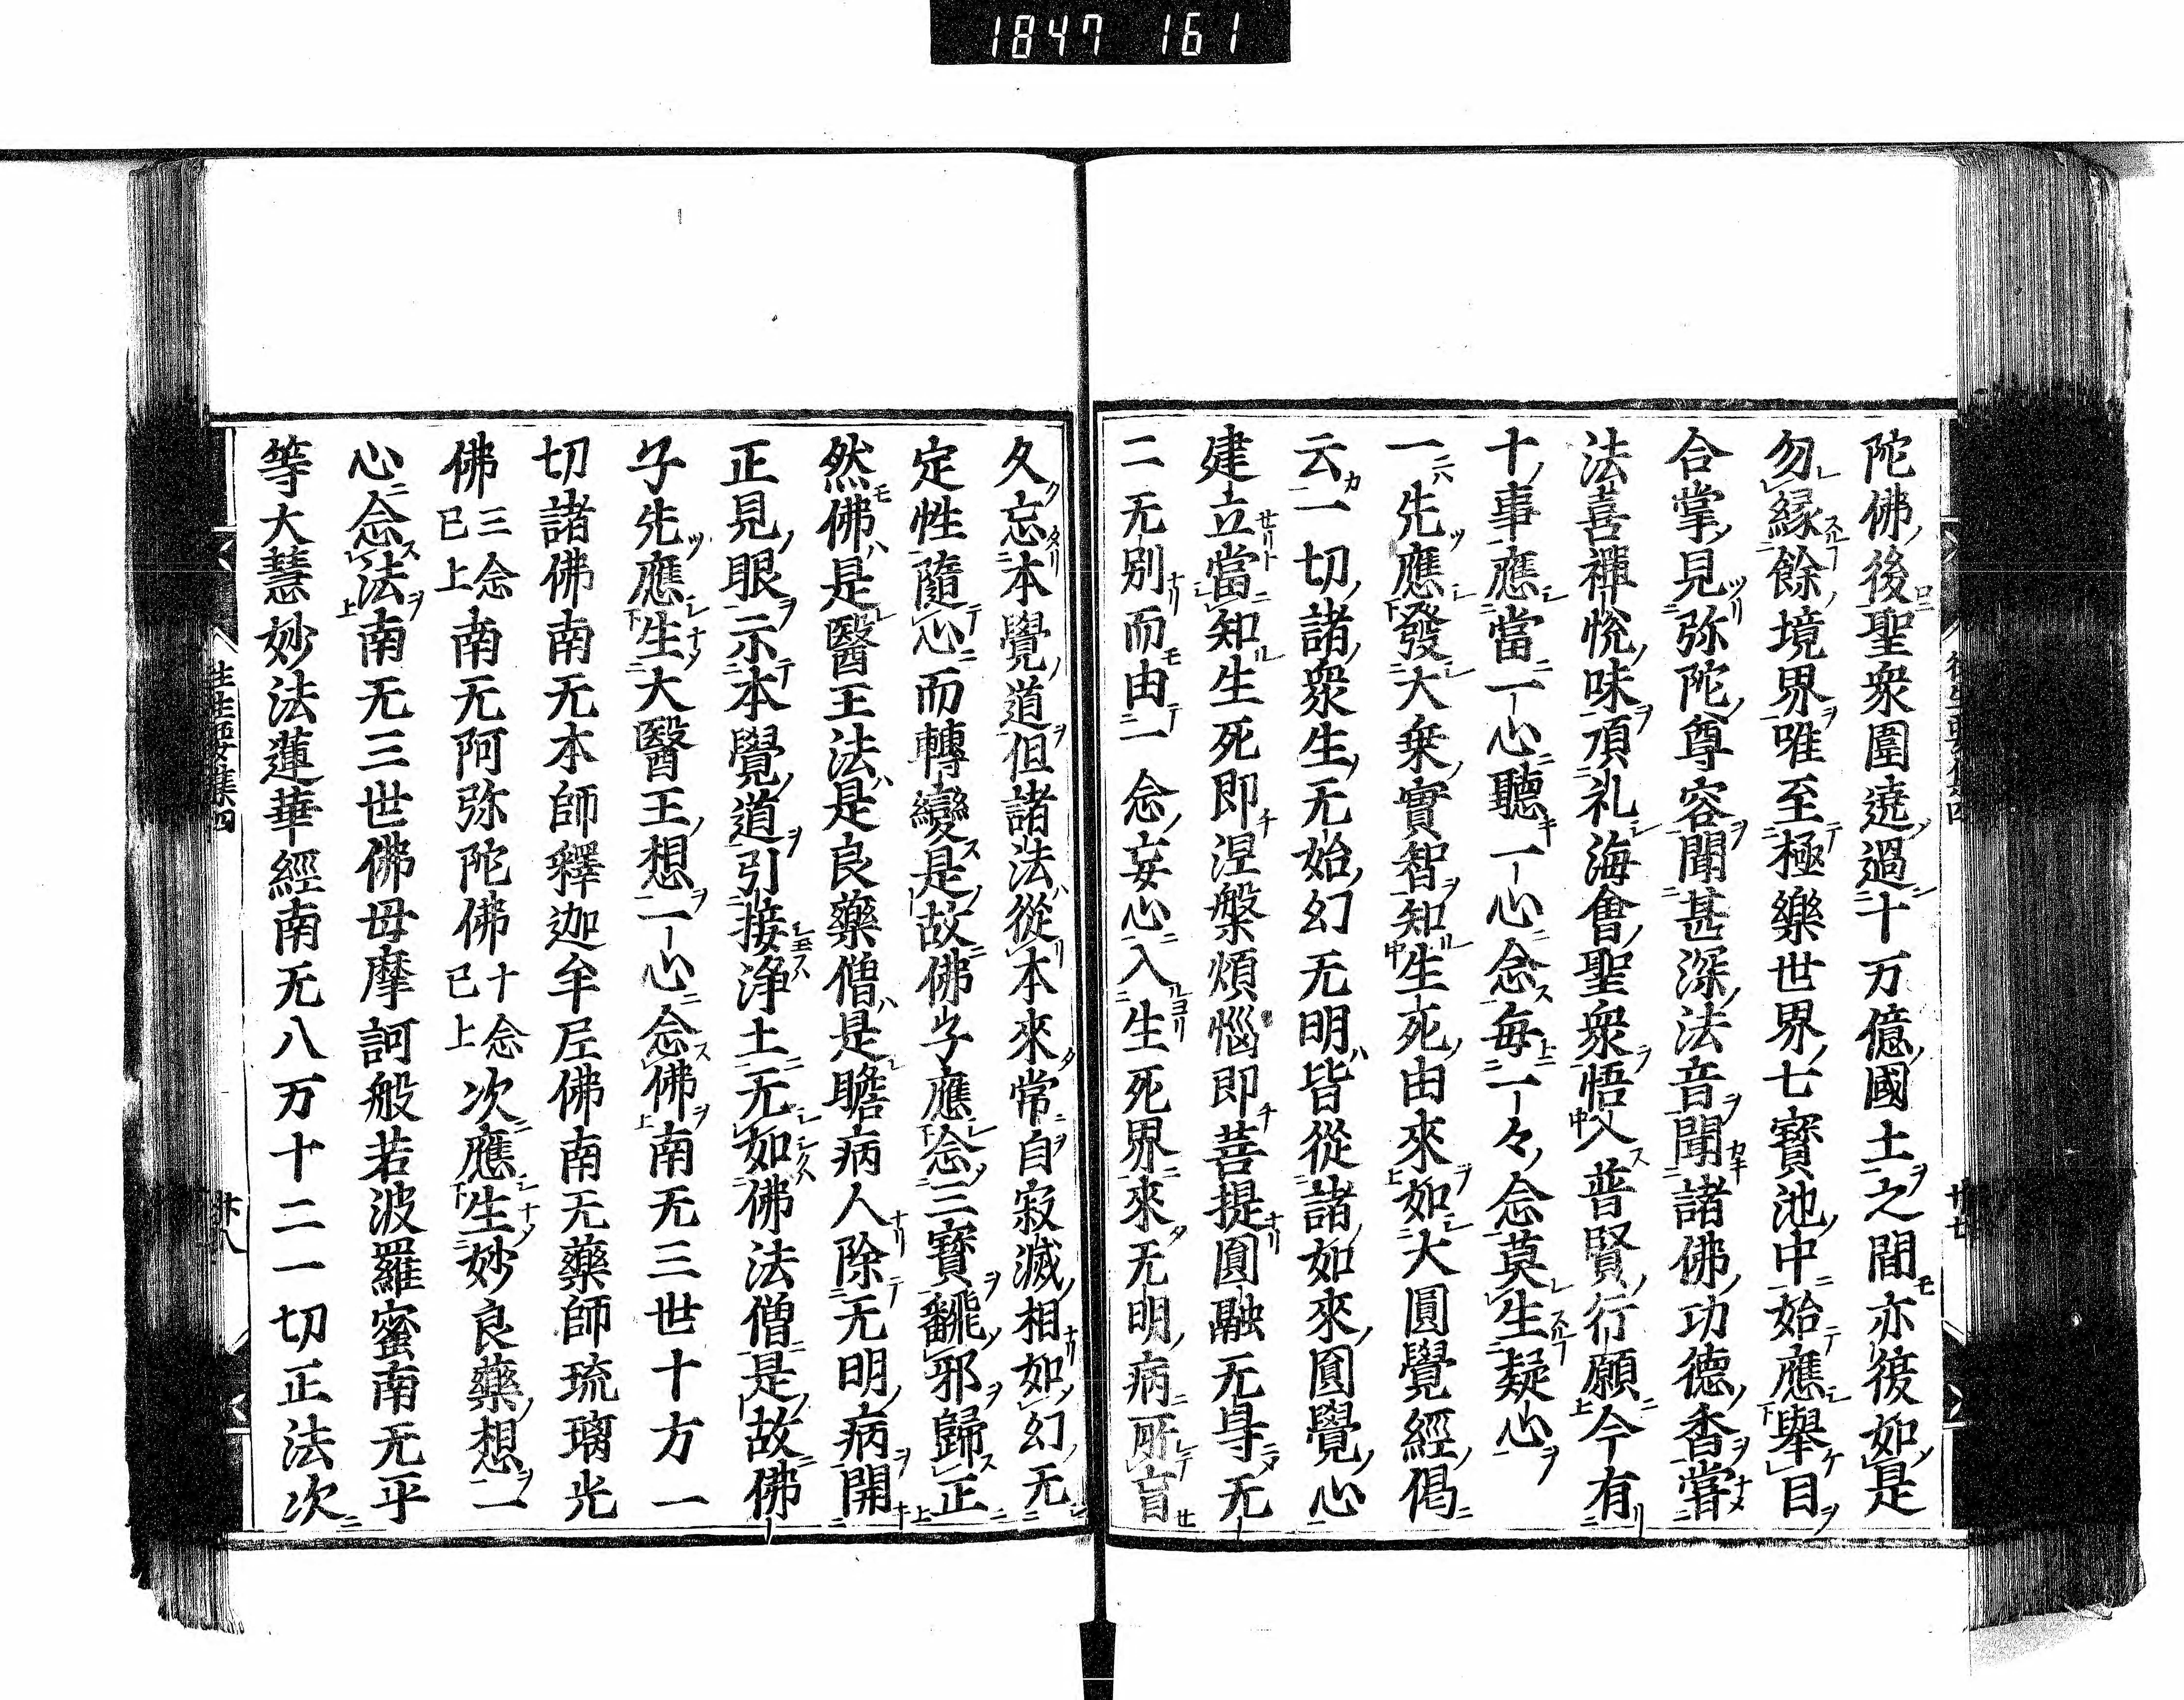 1847 161
陀佛後聖衆圍遶過十万億國土之間亦復如是
勿緣餘境界唯至極樂世界七寶池中始應舉目
合掌見弥陀尊容聞甚深法音聞諸佛功德香嘗
法喜禪悅味頂礼海會聖衆悟入普賢行願今有
十事應當一心聽一心念每一々念莫生疑心
一先應發大乘實智知生死由來如大圓覺經偈
云一切諸衆生无始幻无明皆從諸如來圓覺心
建立當知生死即涅槃煩惱即菩提圓融无㝵无
二无別而由一念妄心入生死界來无明病所盲
久忘本覺道但諸法從本來常自寂滅相如幻无
定性隨心而轉變是故佛子應念三寶翻邪歸正
然佛是醫王法是良藥僧是瞻病人除无明病開
正見眼示本覺道引接淨土无如佛法僧是故佛
子先應生大醫王想一心念佛南无三世十方一
切諸佛南无本師釋迦牟尼佛南无藥師琉璃光
佛三念已上南无阿弥陀佛十念已上次應生妙良藥想一
心念法南无三世佛母摩訶般若波羅蜜南无平
等大慧妙法蓮華經南无八万十二一切正法次
往生要集四
廿八